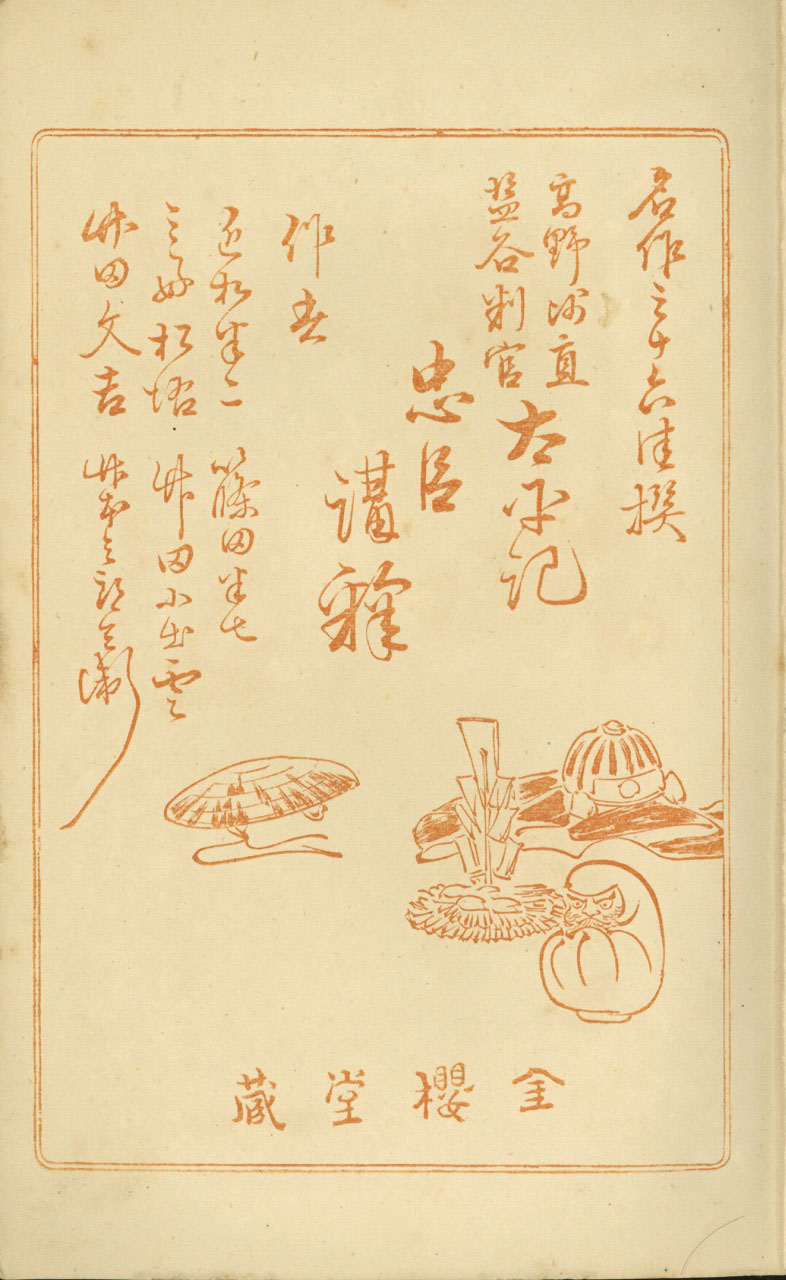 名作三十六佳撰
高野師直
塩谷判官
太平記
忠臣
講釋
作者
近松半二 篠田半七
三好松洛 竹田小出雲
竹田文吉 竹本三郎兵衛
金櫻堂蔵